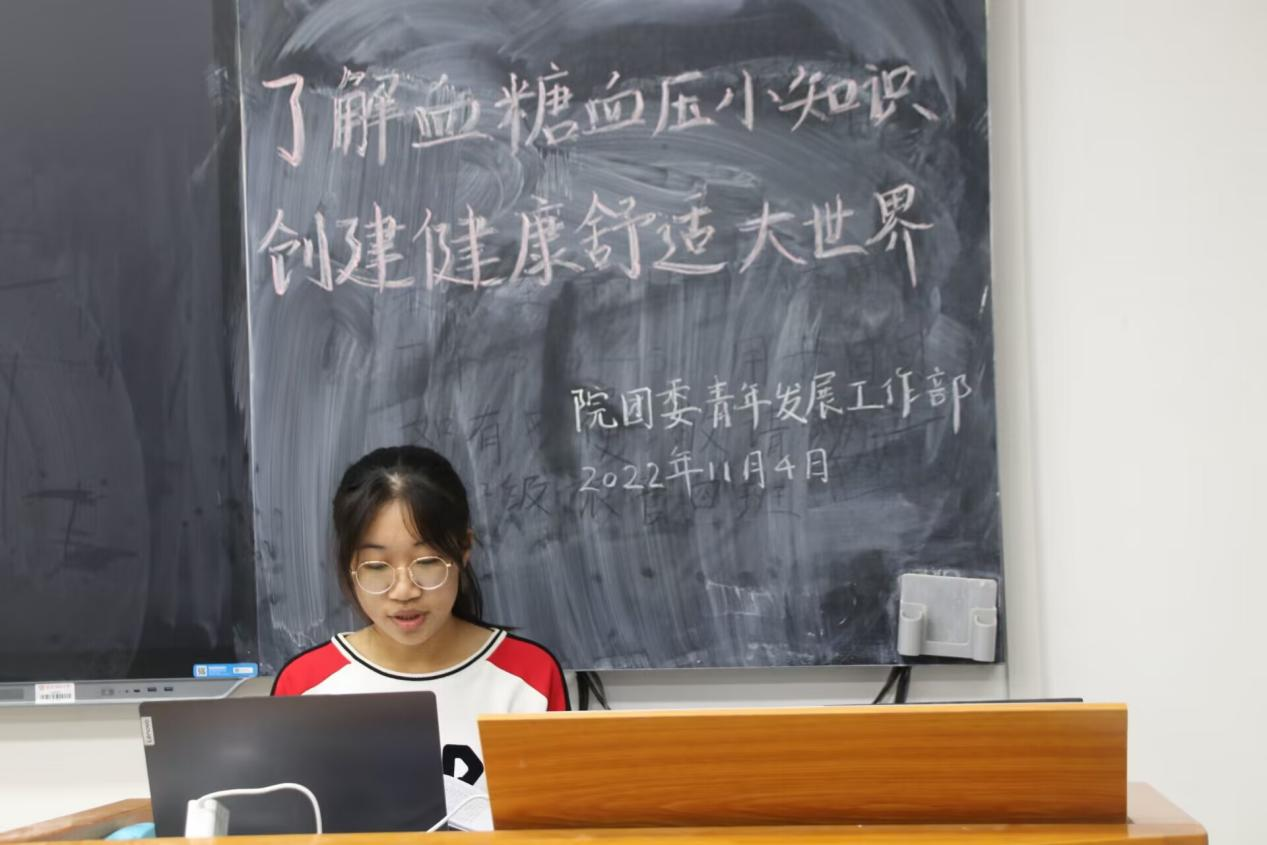 了解血糖血压小知识
创建健康舒适大世界
院团委青年发展工作部
2022年11月4日
Lenovo